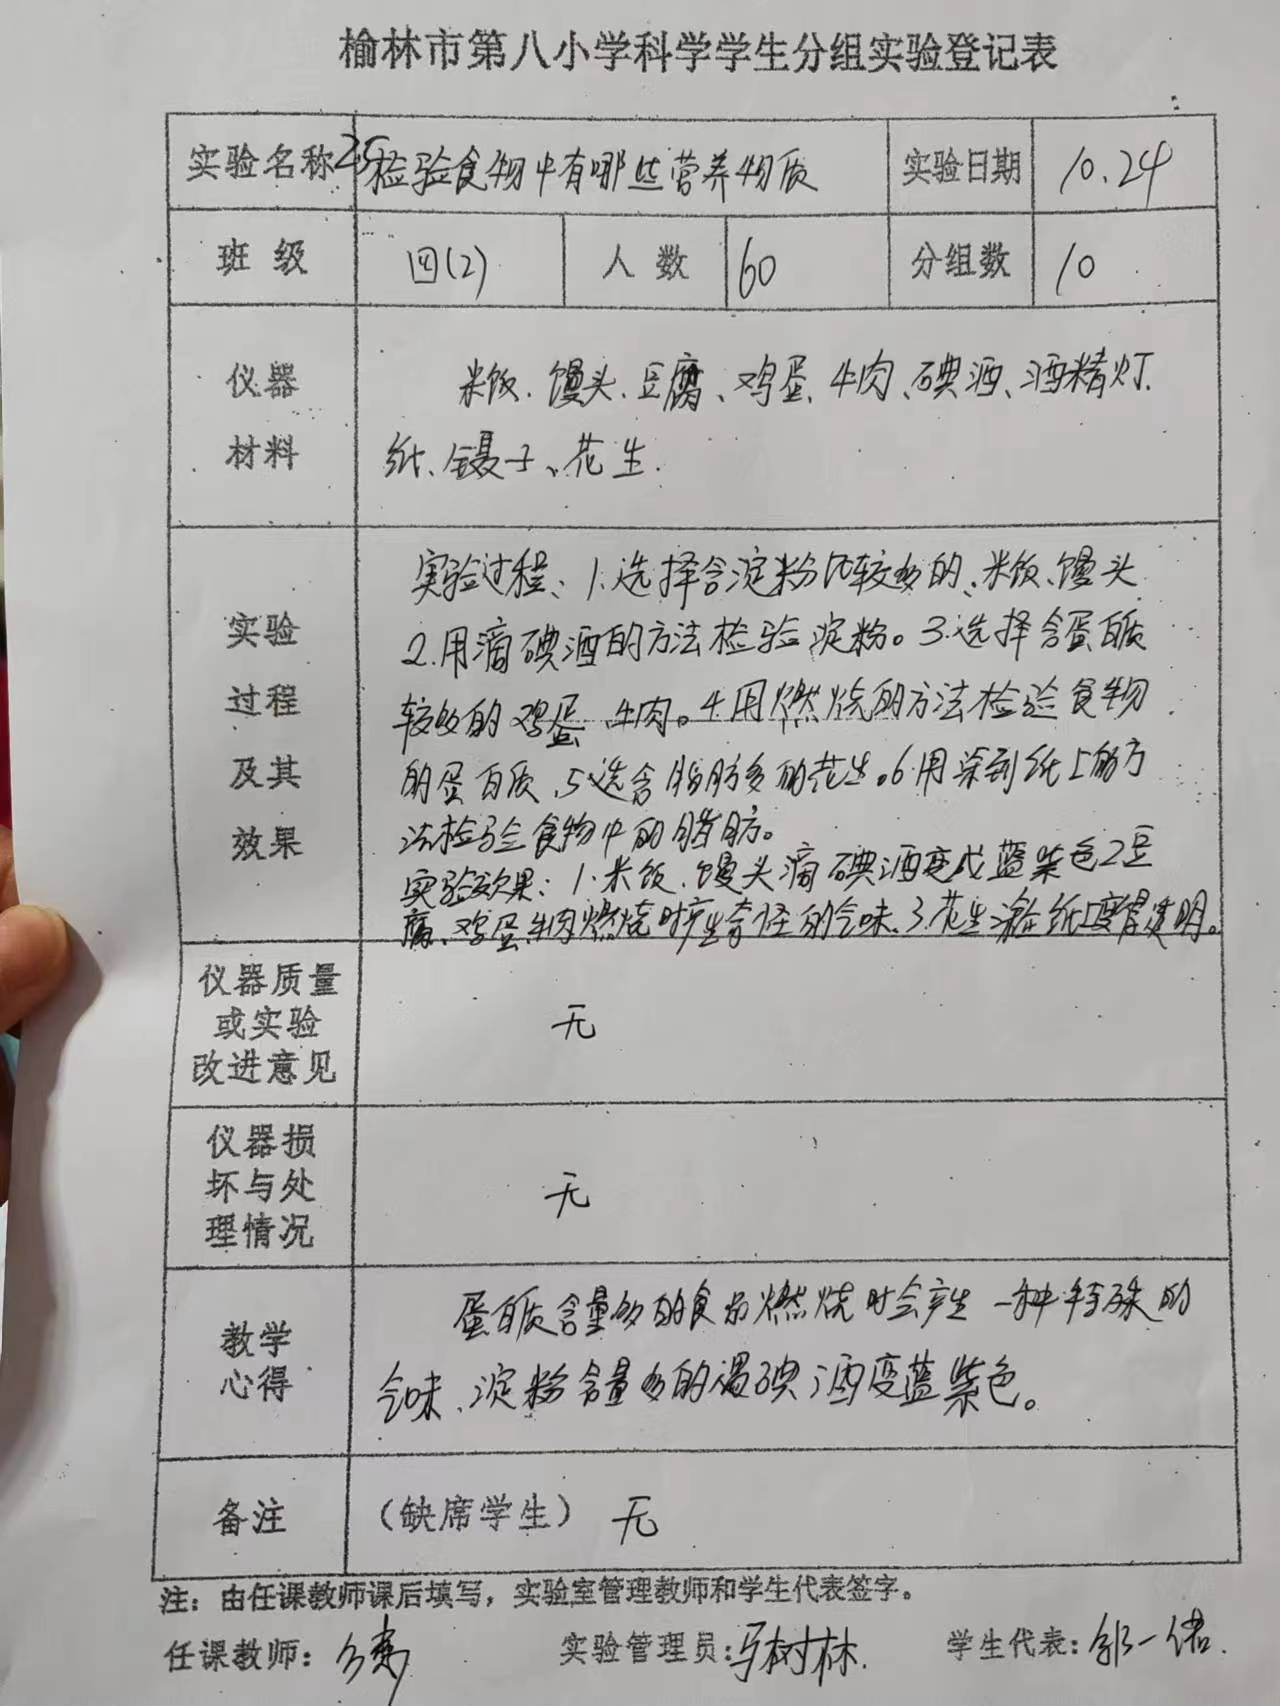 榆林市第八小学科学学生分组实验登记表
实验名称 25 检验食物中有哪些营养物质 实验日期 10.24
班级 四(2) 人数 60 分组数 10
仪器
材料
米饭、馒头、豆腐、鸡蛋、牛肉、碘酒、酒精灯、
纸、镊子、花生.
实验
过程
及其
效果
实验过程、1.选择含淀粉比较多的、米饭、馒头
2.用滴碘酒的方法检验淀粉。3.选择含蛋白质
较多的鸡蛋、牛肉。4.用燃烧的方法检验食物
的蛋白质、5.选含脂肪多的花生。6.用 到纸上的方
法检验食物中的脂肪。
实验效果：1.米饭、馒头滴碘酒变成蓝紫色2豆
腐、鸡蛋、牛肉燃烧时产生奇怪的气味.3.花生 纸 变得透明。
仪器质量
或实验
改进意见
无
仪器损
坏与处
理情况
无
教学
心得
蛋白质含量多的食品燃烧时会产生一种特殊的
气味、淀粉含量多的遇碘酒变蓝紫色。
备注 （缺席学生） 无
注：由任课教师课后填写，实验室管理教师和学生代表签字。
任课教师： 实验管理员:马树林. 学生代表:郭一